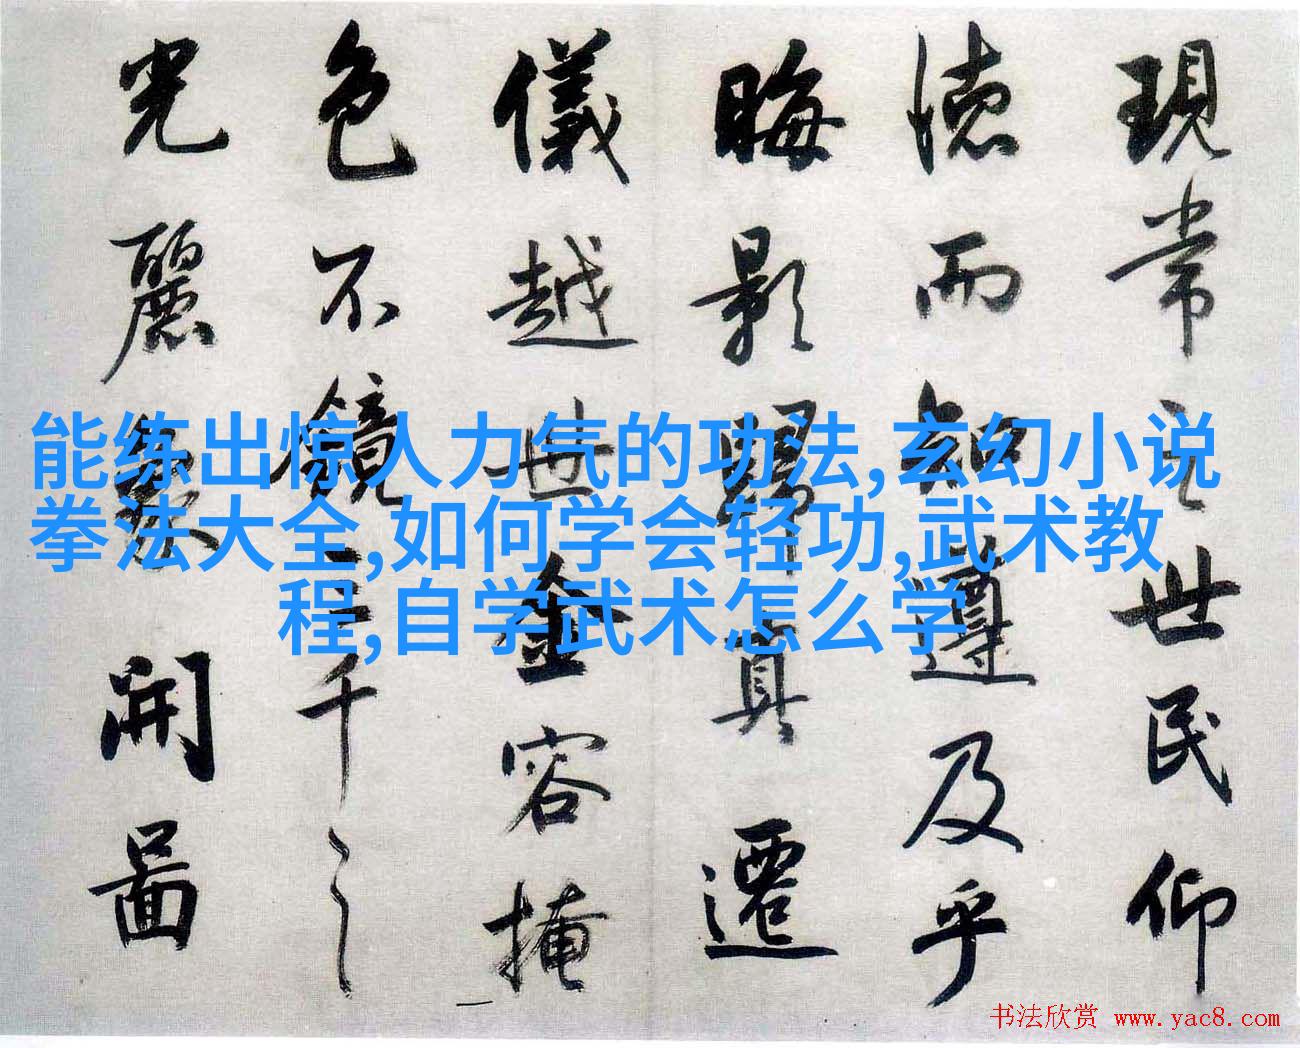 現常之世民仰
德而知遵及乎
晦影歸真遷
儀越世金容掩
色不鏡三千之
光麗象開圖
能练出惊人力气的功法,玄幻小说
拳法大全,如何学会轻功,武术教
程,自学武术怎么学
书法欣赏 www.yac8.com